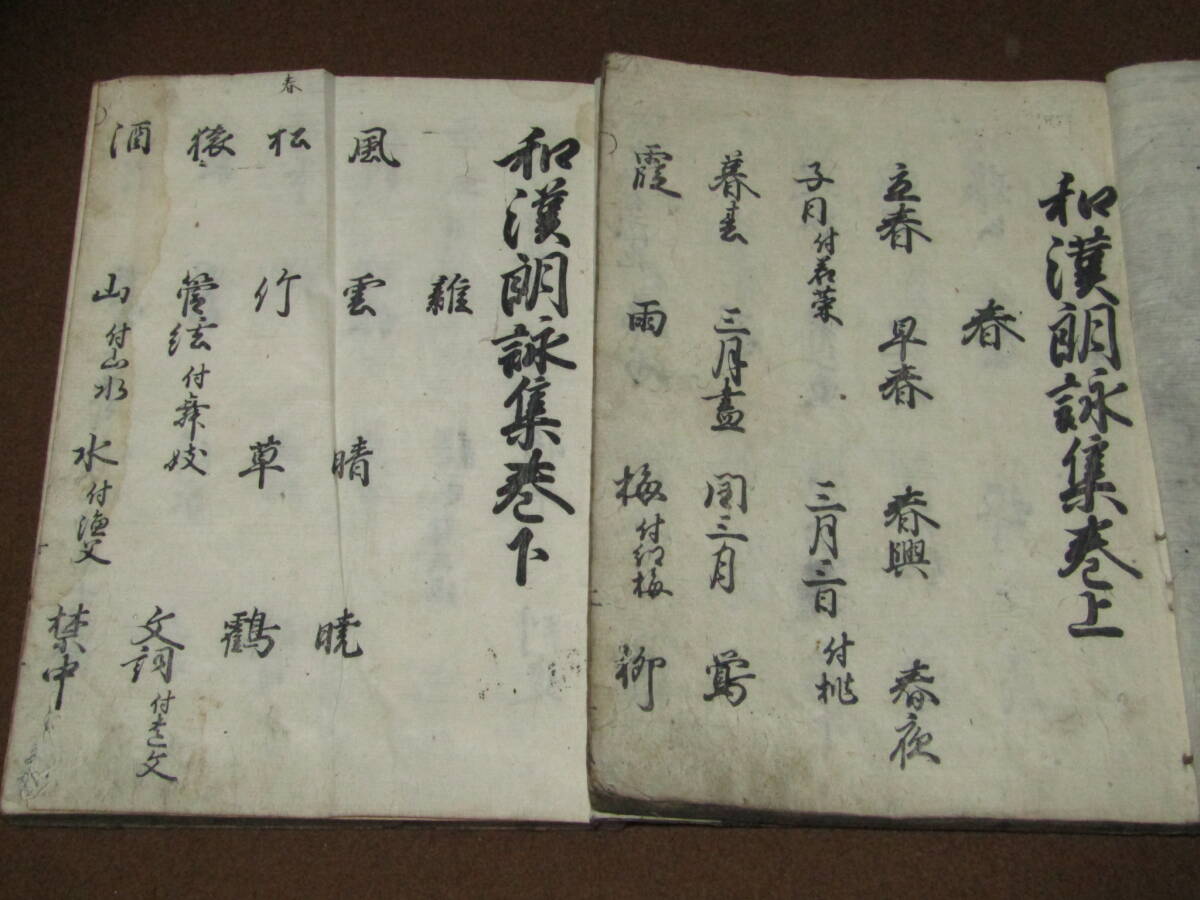 和漢朗詠集巻上
春
立春 早春 春興 春夜
子日付若菜 三月三日付桃
暮春 三月盡 閏三月 鶯
霞 雨 梅付紅梅 柳
和漢朗詠集巻下
雜
風 雲 晴 暁
松 竹 草 鶴
猿 管絃付舞妓 文詞付遺文
酒 山付山水 水付漁父 禁中
春